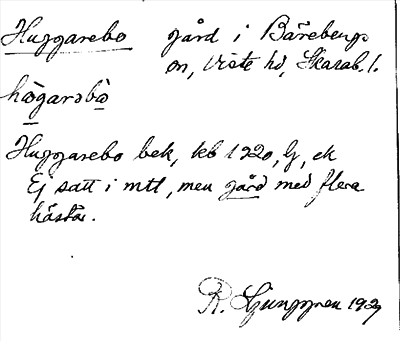 Huggarebo gård i Bärebergs
sn, Viste hd, Skarab. l.
hògarsbò
Huggarebo bek, kb 1920, G, ek
Ej satt i mtl, men gård med flera
hästar.
R. Ljunggren 1927